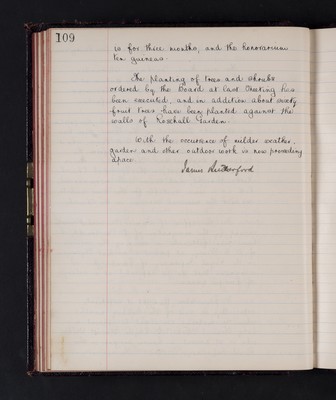 109
is for three months, and the honorarium
ten guineas.
The planting of trees and shrubs
ordered by the Board at last Meeting has
been executed, and in addition about
fruit trees have been planted against the
walls of Rosehall Garden.
With the occurrence of milder weather
garden and other outdoor work is now proceeding
apace.
James Rutherford